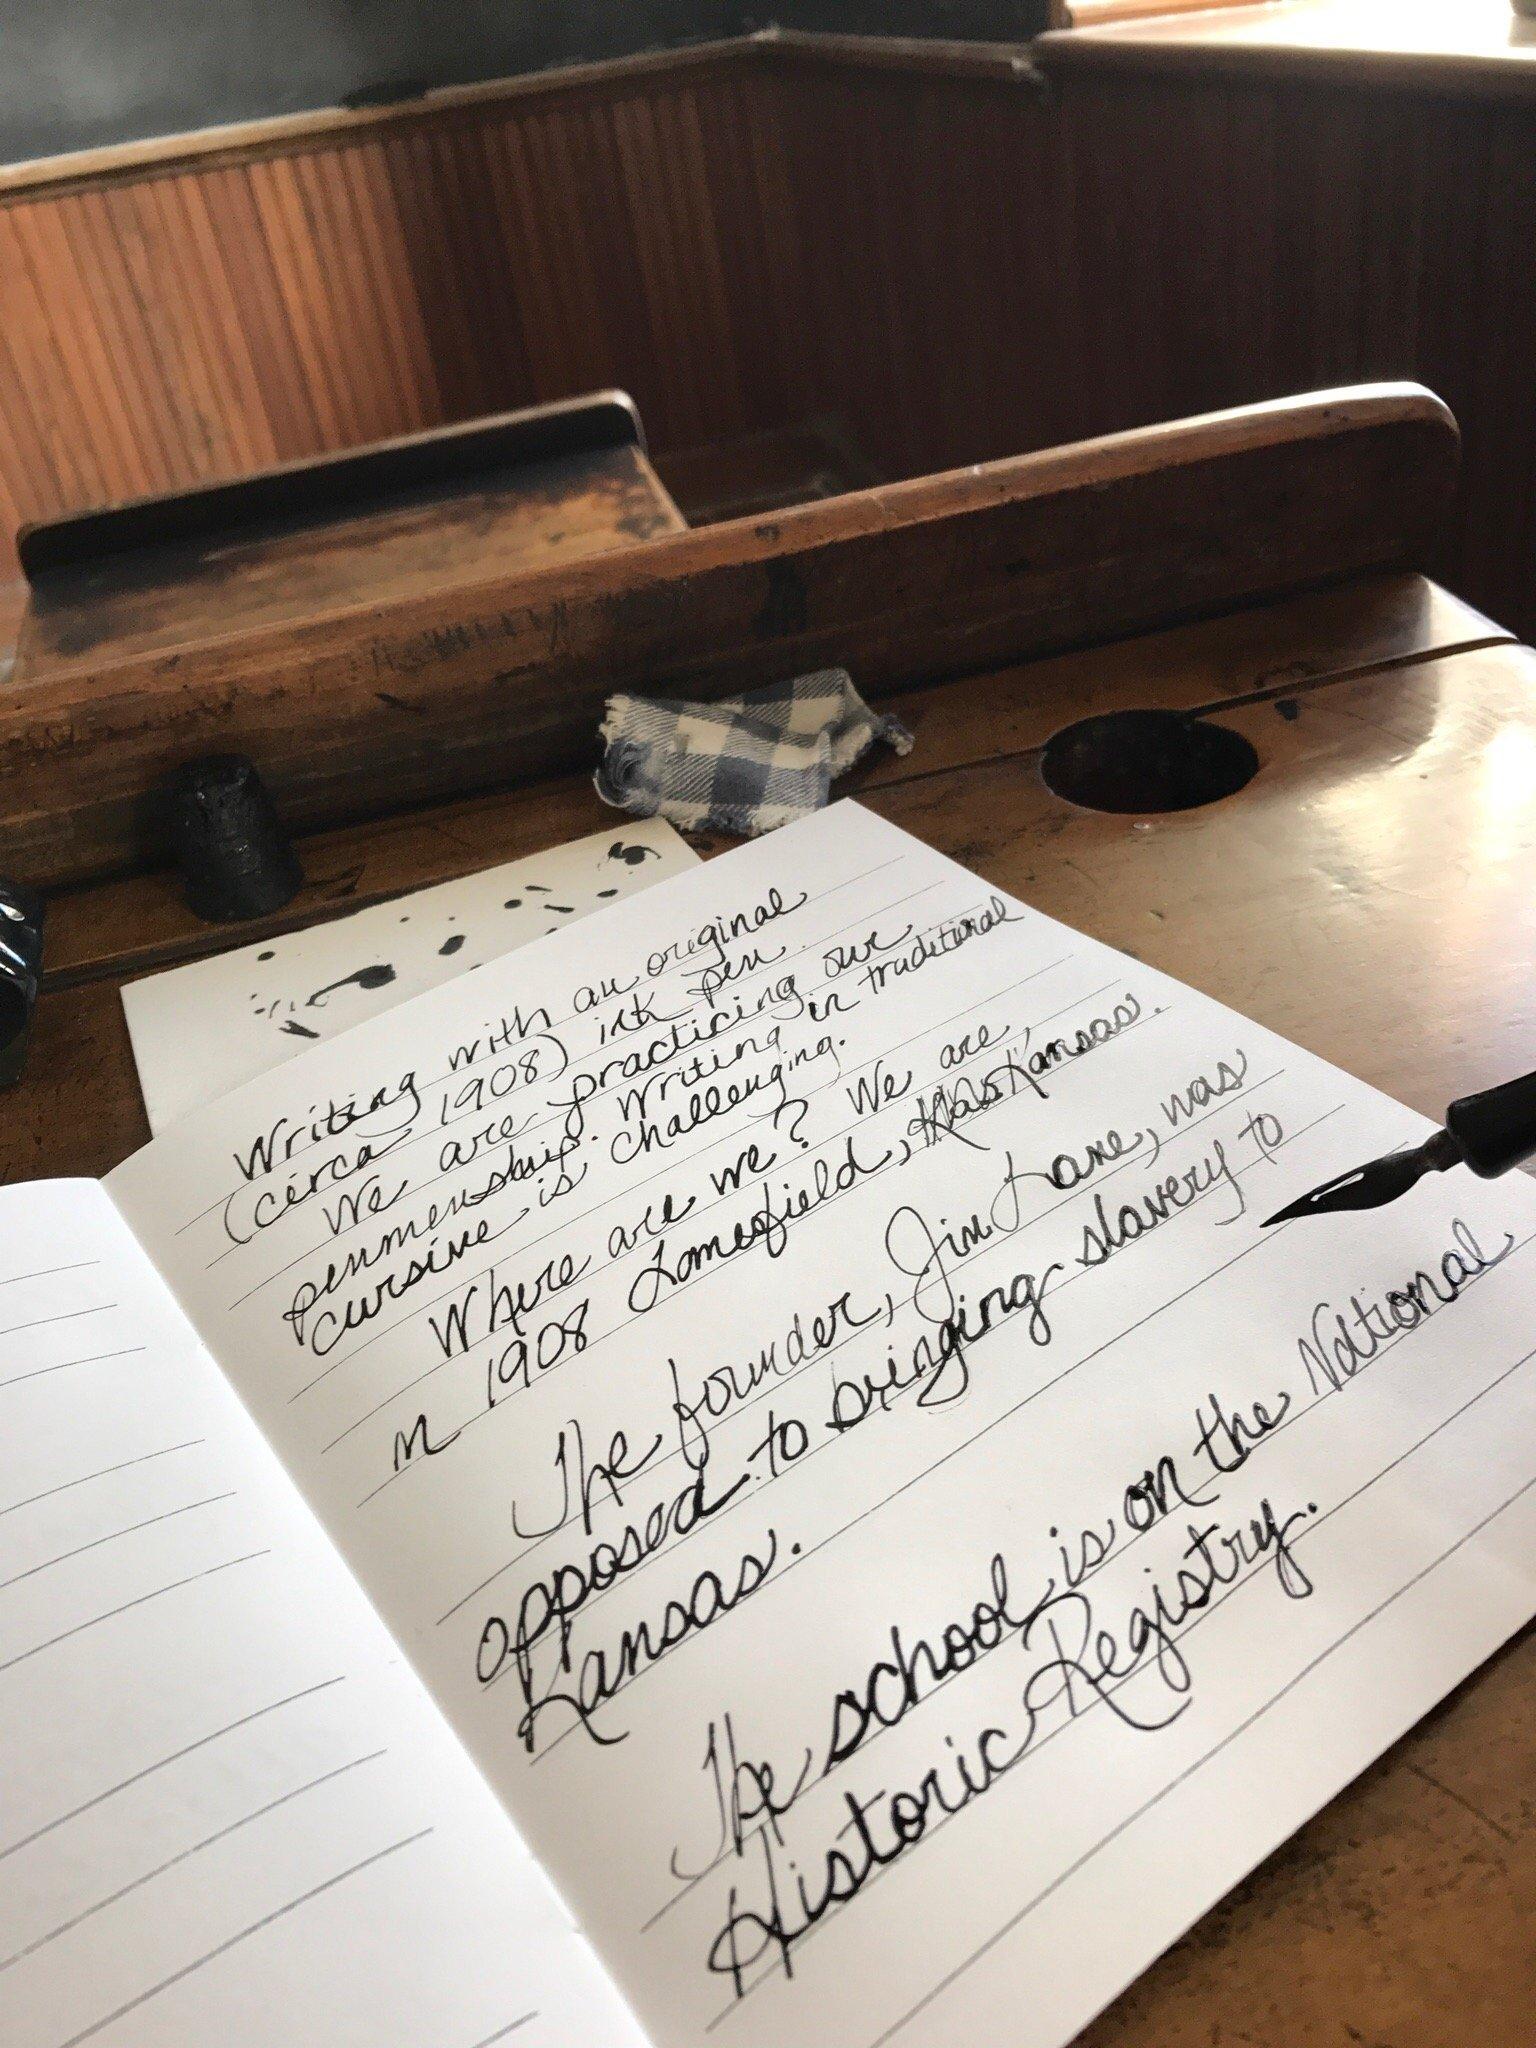 Writing with an original
(circa 1908) ink pen.
We are practicing our
penmenship. Writing in traditional
cursive is challenging.
Where are we? We are
in 1908 Lonesfield, Kansas.
The founder, Jim Lane, was
opposed to bringing slavery to
Kansas.
The school is on the National
Historic Registry.